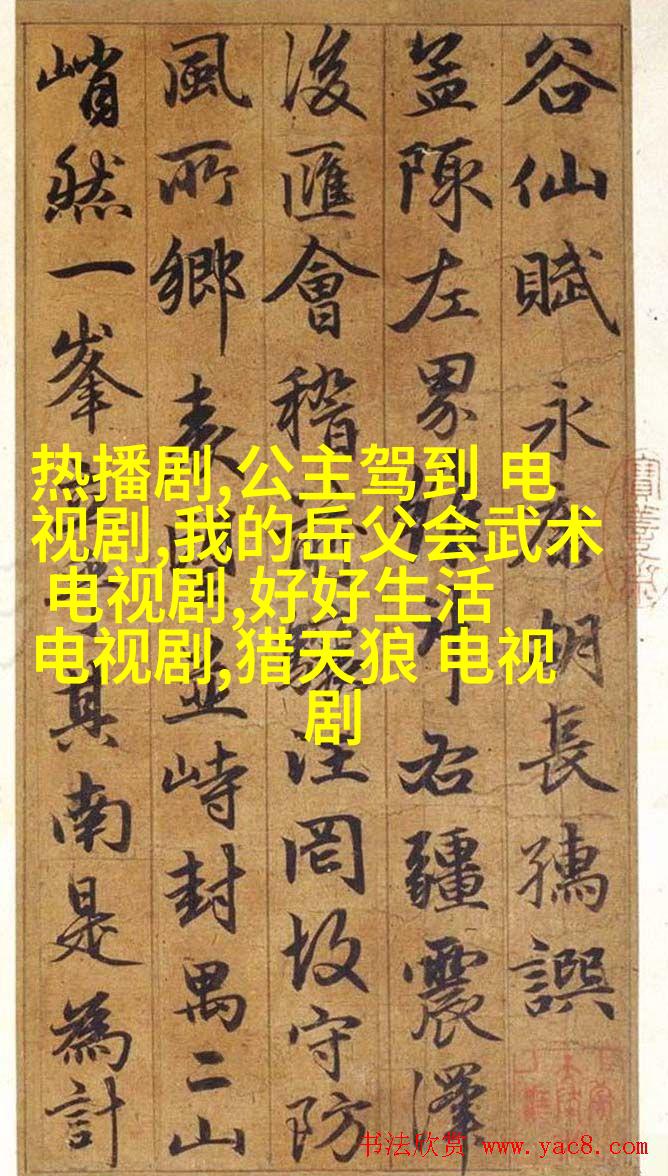 谷仙賦 永康胡長孺譔
陳左界右疆震澤
浚匯會稽注罔攷守防
風所鄉表並峙封禺二山
峭然一峯其南是為計
热播剧,公主驾到 电
视剧,我的岳父会武术
电视剧,好好生活
电视剧,猎天狼 电视
剧
书法欣赏 www.yac8.com